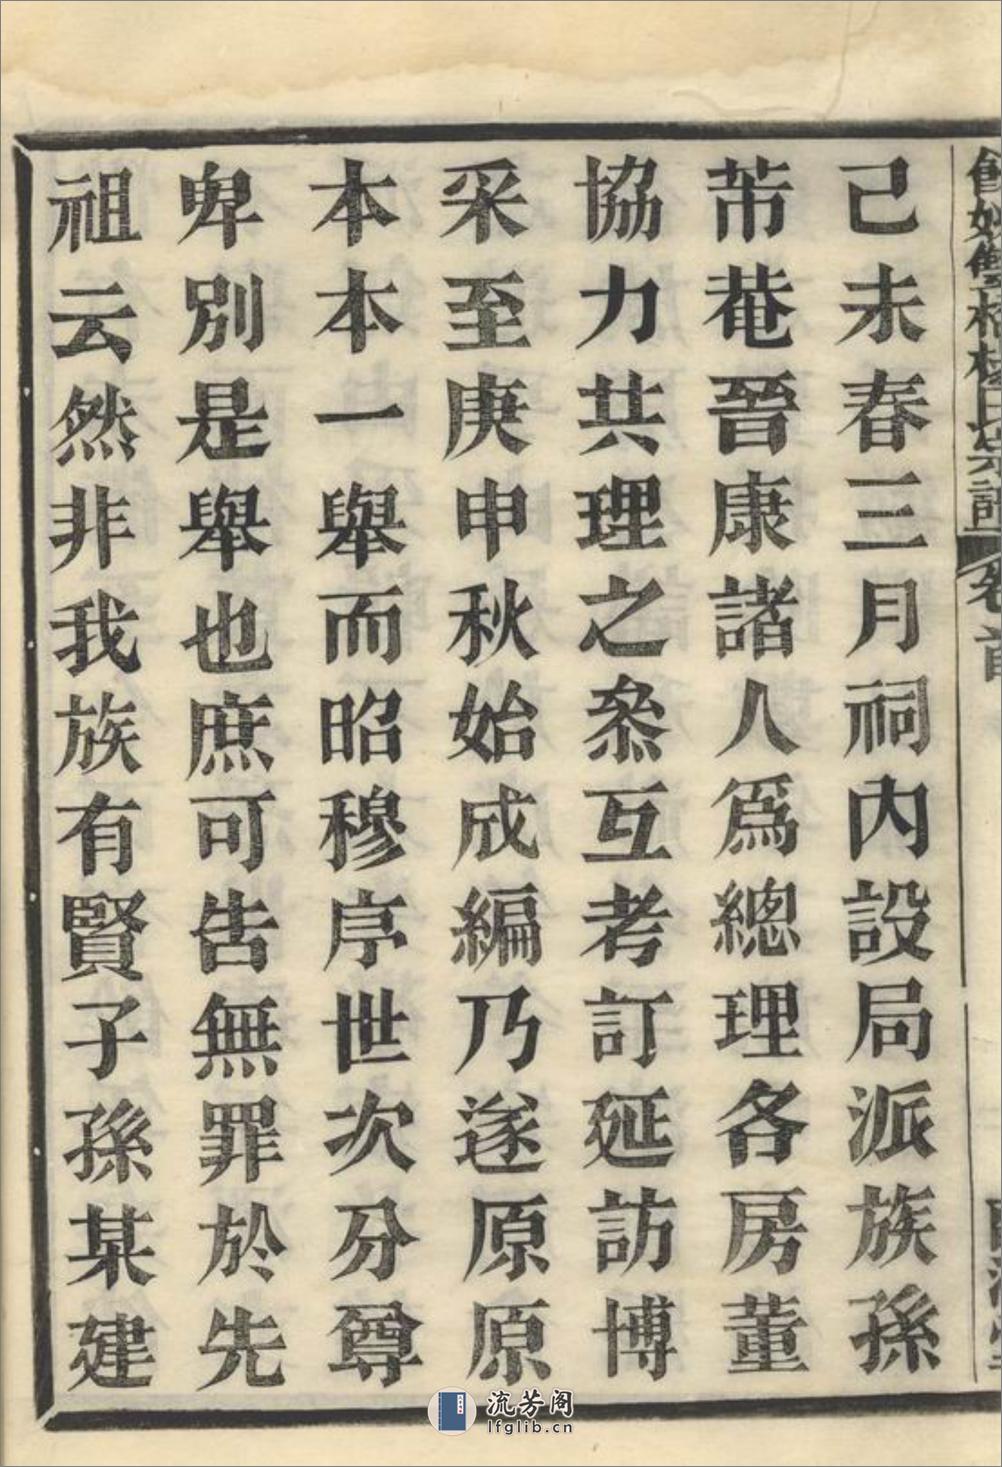 己未春三月祠內設局派族孫
芾菴晉康諸人爲總理各房董
協力共理之叅互考訂延訪博
采至庚申秋始成編乃遂原原
本本一舉而昭穆序世次分尊
卑別是舉也庶可告無罪於先
祖云然非我族有賢子孫某建
卷首
流芳阁
lfglib.cn